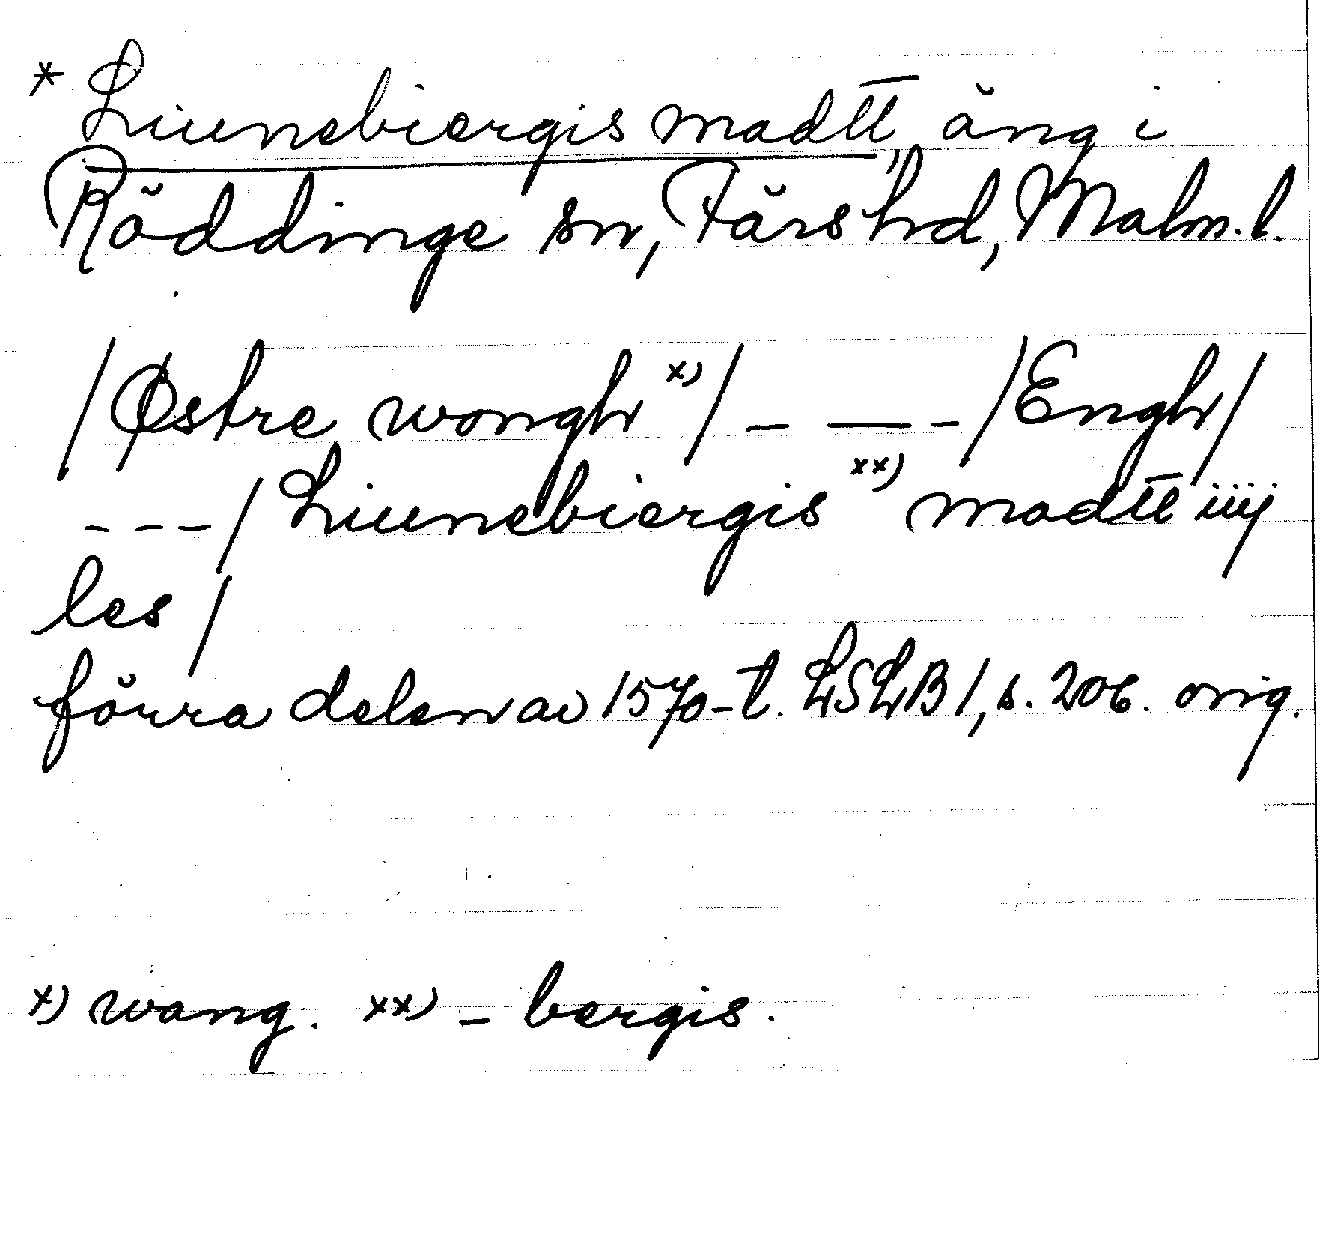 * Liunebiergis madtt, äng i
Röddinge sn, Färs hd, Malm. l.
/Østre wongh x)/ - — - /Engh/
- - - / Liunebiergis xx) madtt iiij
les /
förra delen av 1570-t. LSLB I, s. 206. orig.
x) wang. xx) - bergis.